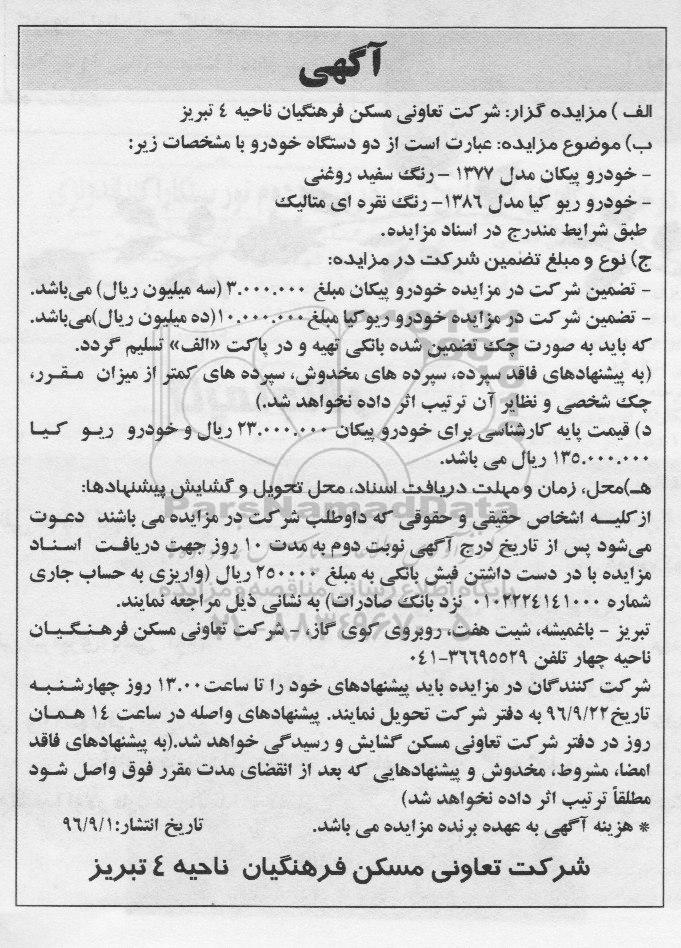 آگهی
الف ) مزایده گزار: شرکت تعاونی مسکن فرهنگیان ناحیه ٤ تبریز
ب) موضوع مزایده: عبارت است از دو دستگاه خودرو با مشخصات زیر:
- خودرو پیکان مدل ۱۳۷۷ - رنگ سفید روغنی
- خودرو ریو کیا مدل ۱۳۸۶- رنگ نقره ای متالیک
طبق شرایط مندرج در اسناد مزایده.
ج) نوع و مبلغ تضمین شرکت در مزایده:
- تضمین شرکت در مزایده خودرو پیکان مبلغ ۳.۰۰۰.۰۰۰ (سه میلیون ریال) می‌باشد.
- تضمین شرکت در مزایده خودرو ریوکیا مبلغ ۱۰.۰۰۰.۰۰۰(ده میلیون ریال)می‌باشد.
که باید به صورت چک تضمین شده بانکی تهیه و در پاکت «الف» تسلیم گردد.
(به پیشنهادهای فاقد سپرده، سپرده های مخدوش، سپرده های کمتر از میزان مقرر،
چک شخصی و نظایر آن ترتیب اثر داده نخواهد شد.)
د) قیمت پایه کارشناسی برای خودرو پیکان ۲۳.۰۰۰.۰۰۰ ریال و خودرو ریو کیا
۱۳۵.۰۰۰.۰۰۰ ریال می باشد.
هـ)محل، زمان و مهلت دریافت اسناد، محل تحویل و گشایش پیشنهادها:
از کلیه اشخاص حقیقی و حقوقی که داوطلب شرکت در مزایده می باشند دعوت
می‌شود پس از تاریخ درج آگهی نوبت دوم به مدت ۱۰ روز جهت دریافت اسناد
مزایده با در دست داشتن فیش بانکی به مبلغ ۲۵۰۰۰۰ ریال (واریزی به حساب جاری
شماره ۰۱۰۲۲۲٤۱٤۱۰۰۰ نزد بانک صادرات) به نشانی ذیل مراجعه نمایند.
تبریز - باغمیشه، شیت هفت، روبروی کوی گاز، - شرکت تعاونی مسکن فرهنگیان
ناحیه چهار تلفن ۳۶۶۹۵۵۲۹-۰٤۱
شرکت کنندگان در مزایده باید پیشنهادهای خود را تا ساعت۱۳.۰۰ روز چهارشنبه
تاریخ۹۶/۹/۲۲ به دفتر شرکت تحویل نمایند. پیشنهادهای واصله در ساعت ۱٤ همان
روز در دفتر شرکت تعاونی مسکن گشایش و رسیدگی خواهد شد.(به پیشنهادهای فاقد
امضا، مشروط، مخدوش و پیشنهادهایی که بعد از انقضای مدت مقرر فوق واصل شود
مطلقاً ترتیب اثر داده نخواهد شد)
* هزینه آگهی به عهده برنده مزایده می باشد. تاریخ انتشار:۹۶/۹/۱
شرکت تعاونی مسکن فرهنگیان ناحیه ٤ تبریز
ParsNamadData